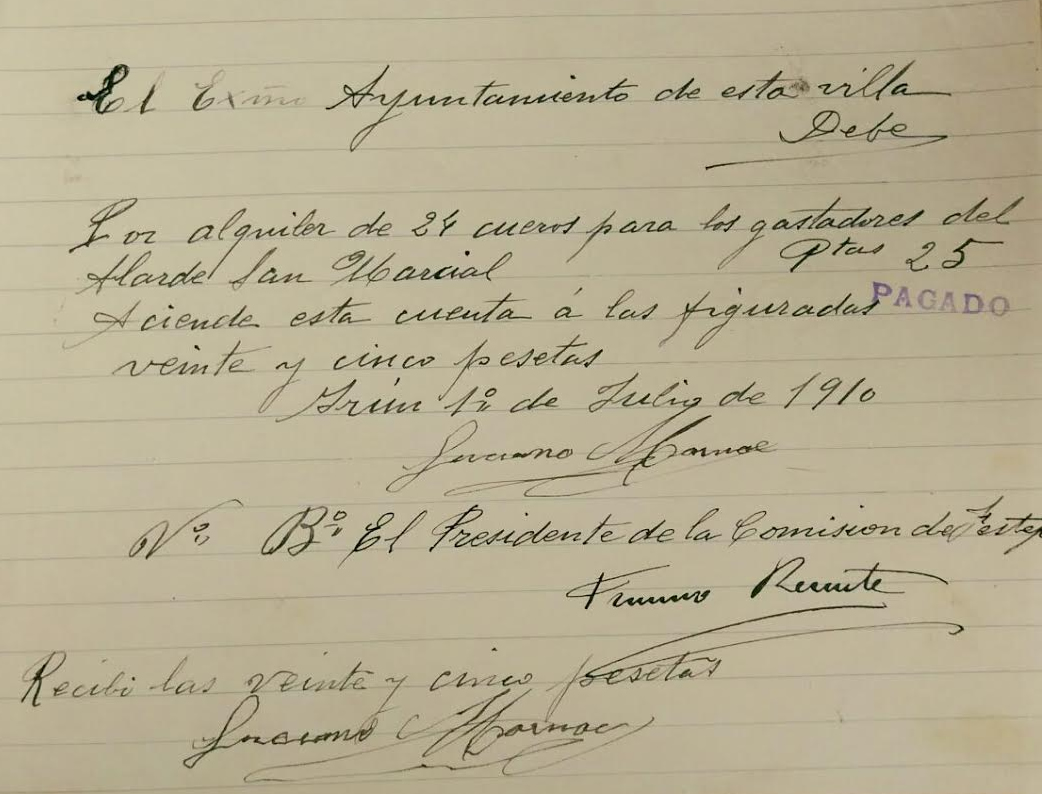 El Exmo Ayuntamiento de esta villa
Debe
Por alquiler de 24 cueros para los gastadores del
Alarde San Marcial Ptas 25
PAGADO
Aciende esta cuenta á las figuradas
veinte y cinco pesetas
Irún 1º de Julio de 1910
Luciano
Vº Bº El Presidente de la Comision de
Recibi las veinte y cinco pesetas
Luciano